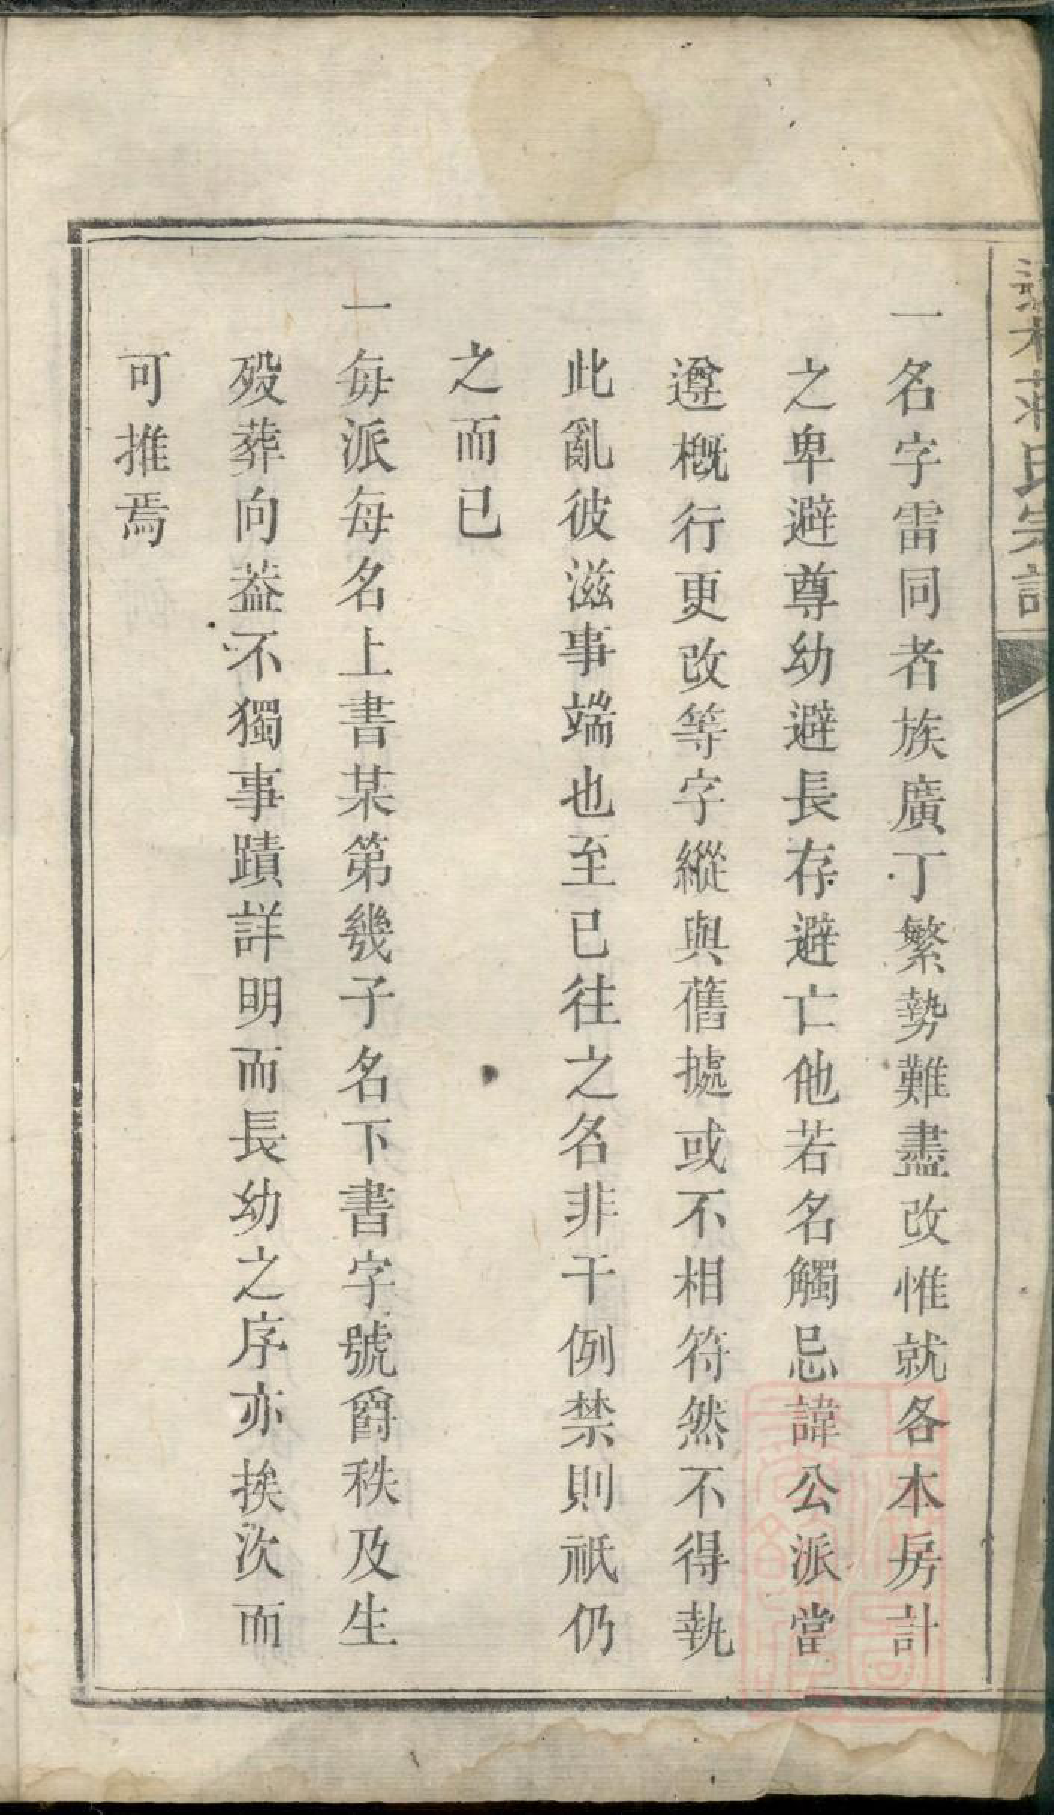 氏宗譜
一名字雷同者族廣丁繁勢難盡改惟就各本房計
之卑避尊幼避長存避亡他若名觸忌諱公派當
遵概行更改等字縱與舊㨿或不相符然不得執
此亂彼滋事端也至已往之名非干例禁則祇仍
之而已
一每派每名上書某第幾子名下書字號爵秩及生
歿葬向葢不獨事蹟詳明而長幼之序亦挨次而
可推焉